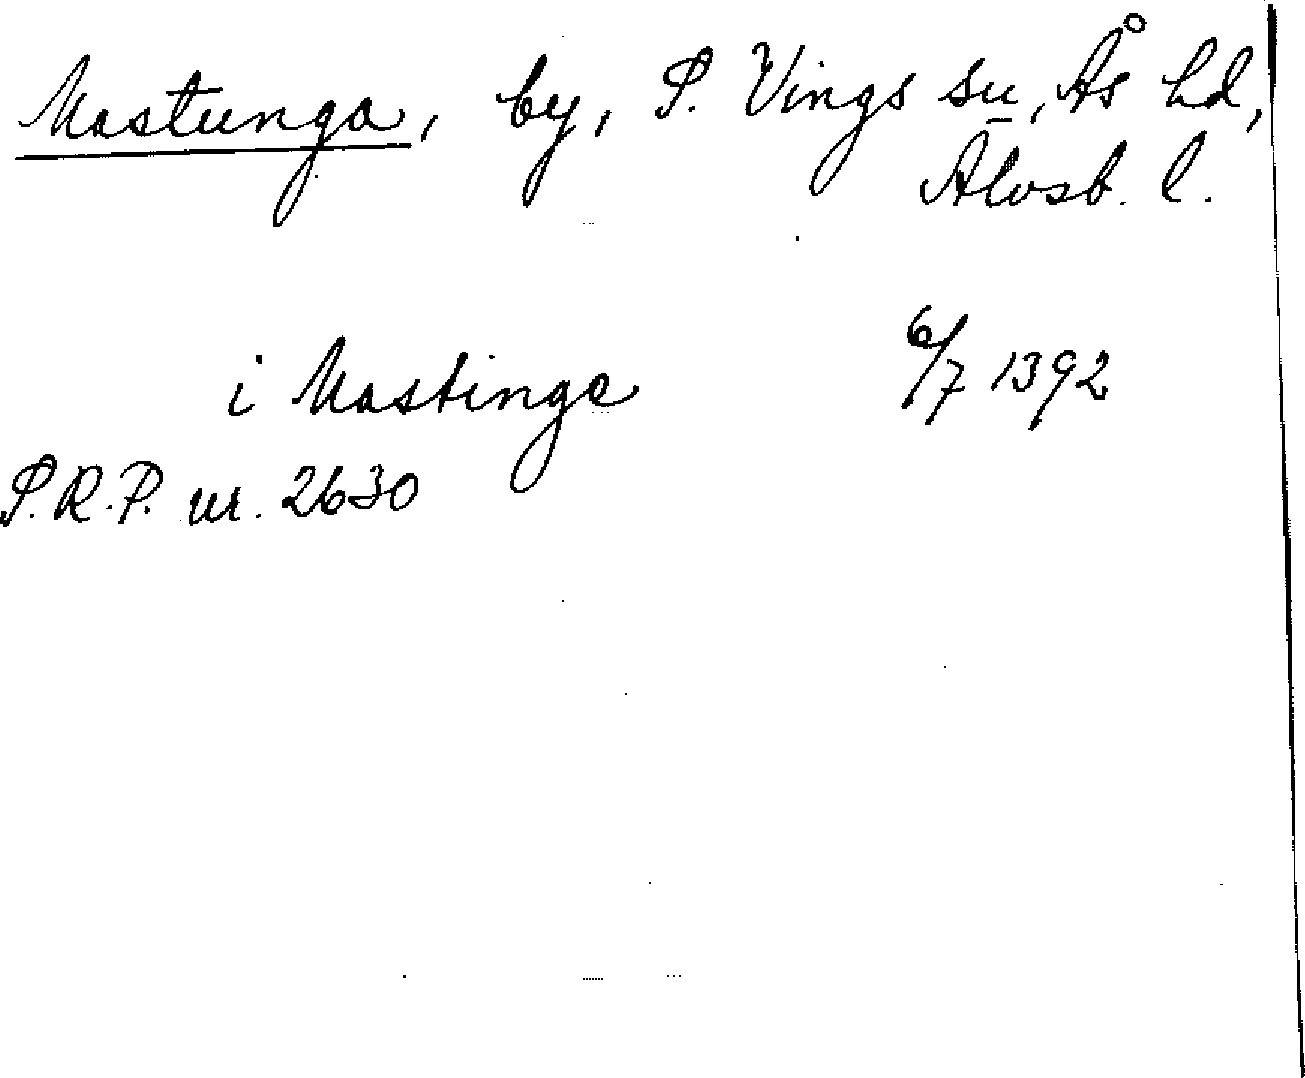 Mastunga, by, S. Vings sn, Ås hd,
Älvsb. l.
i Mastinge 6/7 1392
S.R.P. nr. 2630